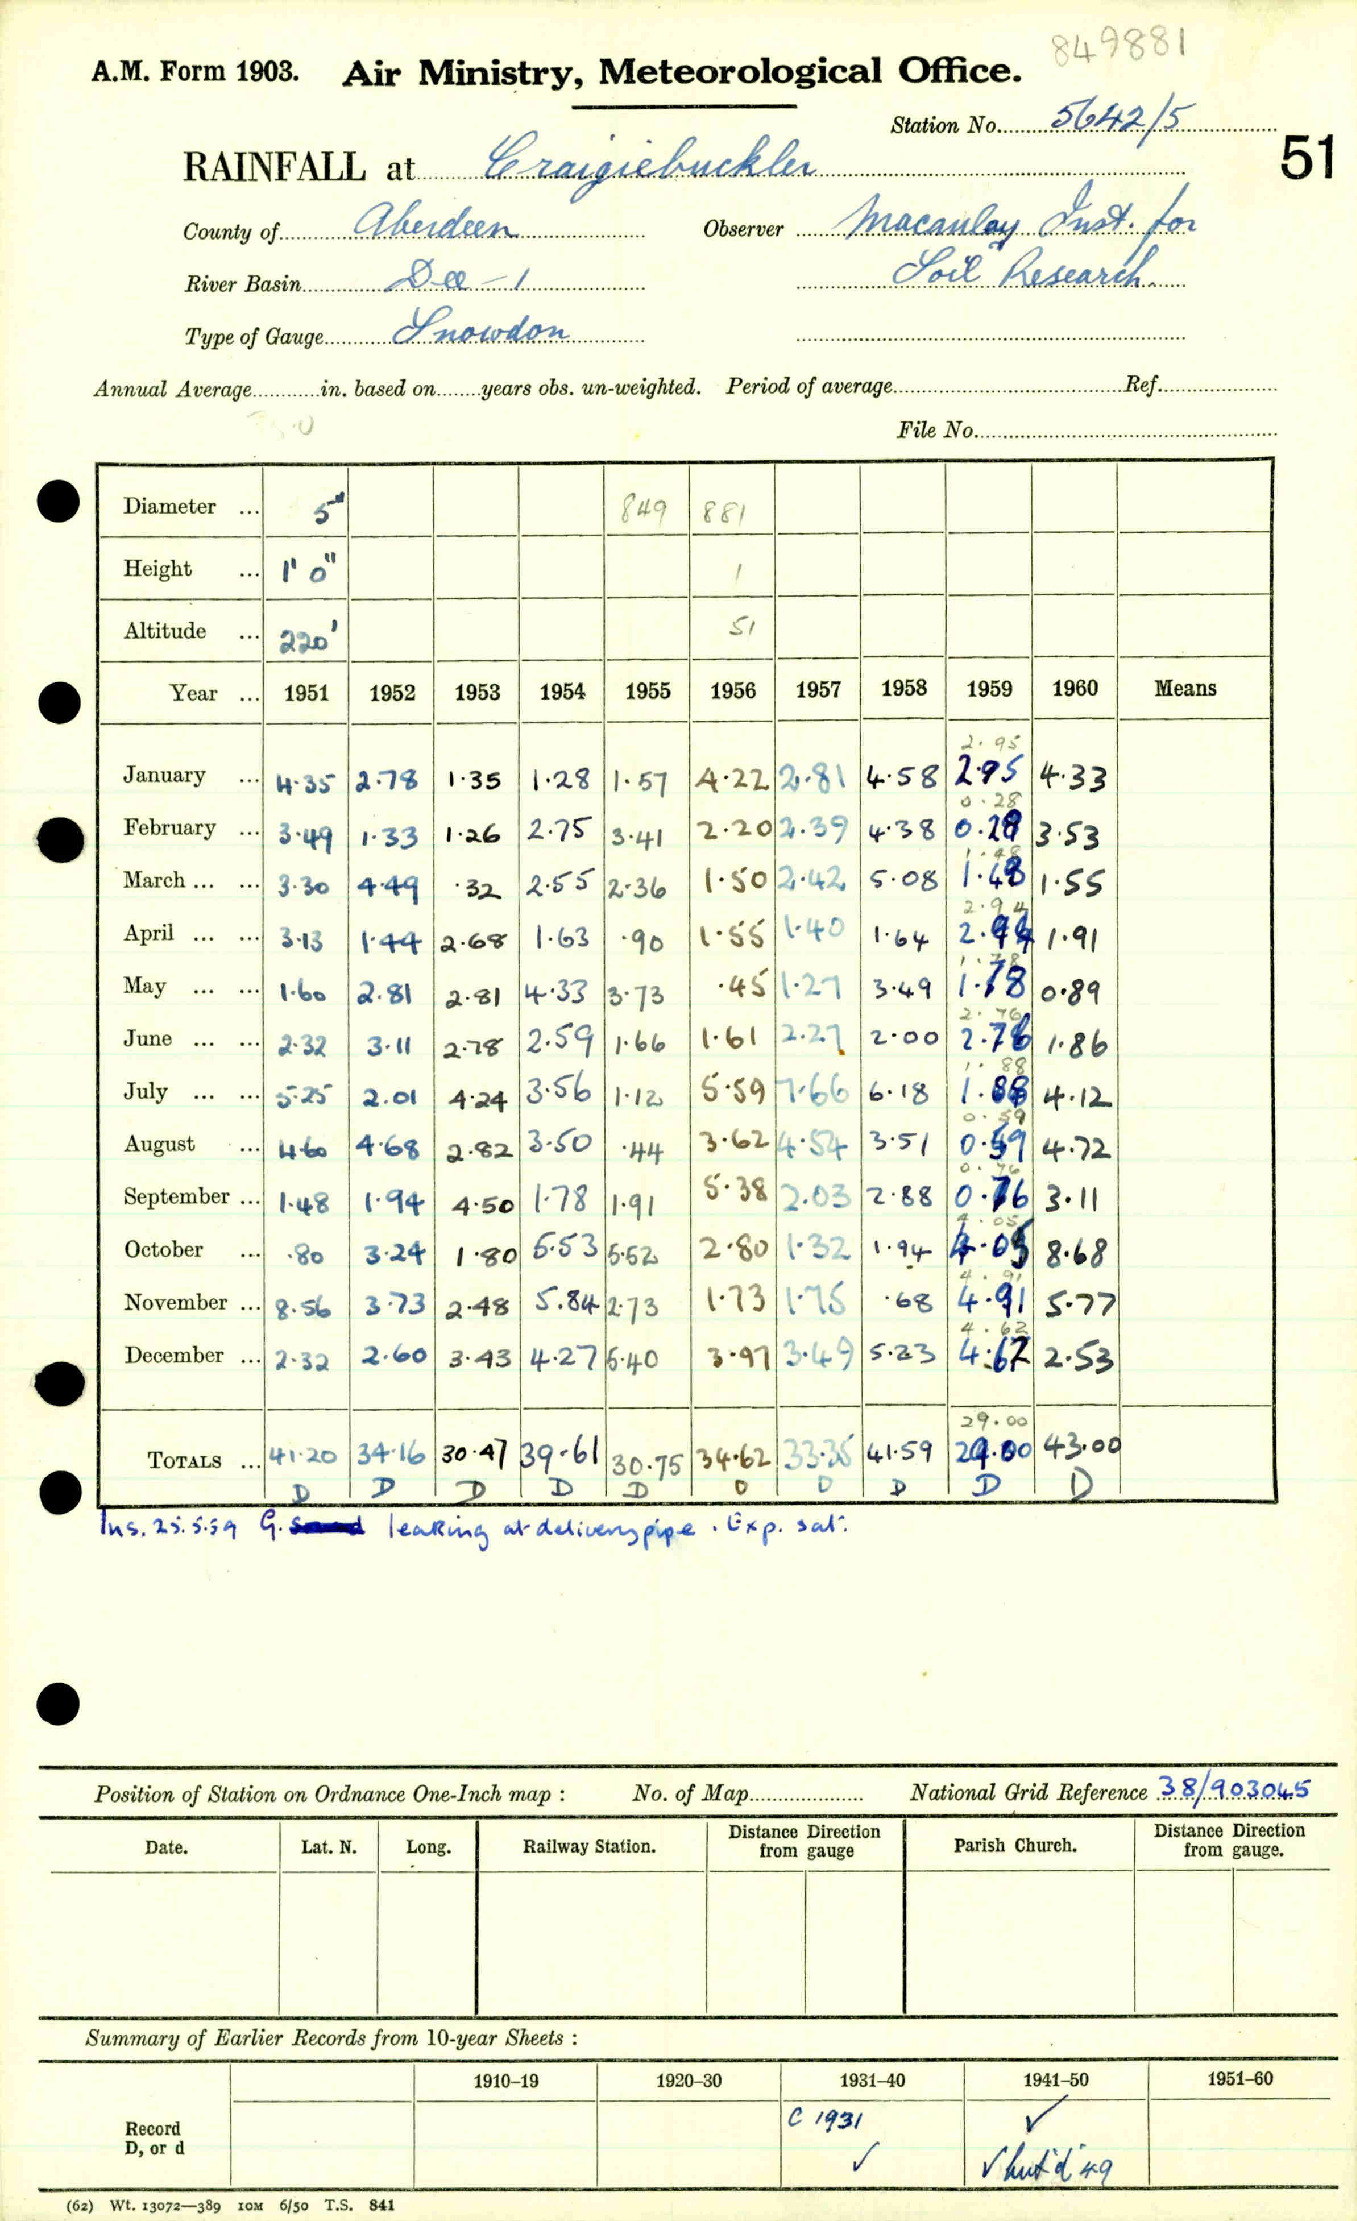 849881
A.M. Form 1903. Air Ministry, Meteorological Office.
Station No. 5642/5
51
RAINFALL at Craigiebuckler
County of Aberdeen Observer Macaulay Inst. for
River Basin Dee - 1 Soil Research.
Type of Gauge Snowdon
Annual Average in. based on years obs. un-weighted. Period of average Ref.
File No.
Diameter ... 5" 849 881
Height ... 1' 0" 1
Altitude ... 220' 51
Year ... 1951 1952 1953 1954 1955 1956 1957 1958 1959 1960 Means
2.95
January ... 4.35 2.78 1.35 1.28 1.57 4.22 2.81 4.58 2.95 4.33
0.28
February ... 3.49 1.33 1.26 2.75 3.41 2.20 2.39 4.38 0.28 3.53
1.48
March ... ... 3.30 4.49 .32 2.55 2.36 1.50 2.42 5.08 1.48 1.55
2.94
April ... ... 3.13 1.44 2.68 1.63 .90 1.55 1.40 1.64 2.94 1.91
1.78
May ... ... 1.60 2.81 2.81 4.33 3.73 .45 1.27 3.49 1.78 0.89
2.76
June ... ... 2.32 3.11 2.78 2.59 1.66 1.61 2.27 2.00 2.76 1.86
1.88
July ... ... 5.25 2.01 4.24 3.56 1.12 5.59 7.66 6.18 1.88 4.12
0.59
August ... 4.60 4.68 2.82 3.50 .44 3.62 4.54 3.51 0.59 4.72
0.76
September ... 1.48 1.94 4.50 1.78 1.91 5.38 2.03 2.88 0.76 3.11
4.05
October ... .80 3.24 1.80 5.53 5.52 2.80 1.32 1.94 4.05 8.68
4.91
November ... 8.56 3.73 2.48 5.84 2.73 1.73 1.75 .68 4.91 5.77
4.62
December ... 2.32 2.60 3.43 4.27 5.40 3.97 3.49 5.23 4.62 2.53
29.00
TOTALS ... 41.20 34.16 30.47 39.61 30.75 34.62 33.35 41.59 29.00 43.00
D D D D D D D D D D
Ins. 25.5.59 G. leaking at delivery pipe. Exp. sat.
Position of Station on Ordnance One-Inch map : No. of Map National Grid Reference 38/903045
Date. Lat. N. Long. Railway Station. Distance from Direction gauge Parish Church. Distance from Direction gauge.
Summary of Earlier Records from 10-year Sheets :
1910–19 1920–30 1931–40 1941–50 1951–60
Record C 1931 ✓
D, or d ✓ ✓ but 'd' 49
(62) Wt. 13072—389 10M 6/50 T.S. 841